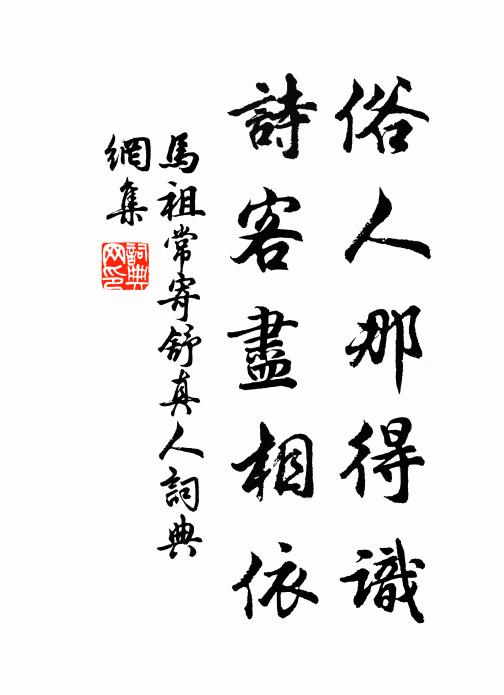 俗人那得識
詩客盡相依
馬祖常寄舒真人詞典
網集
詞典网印